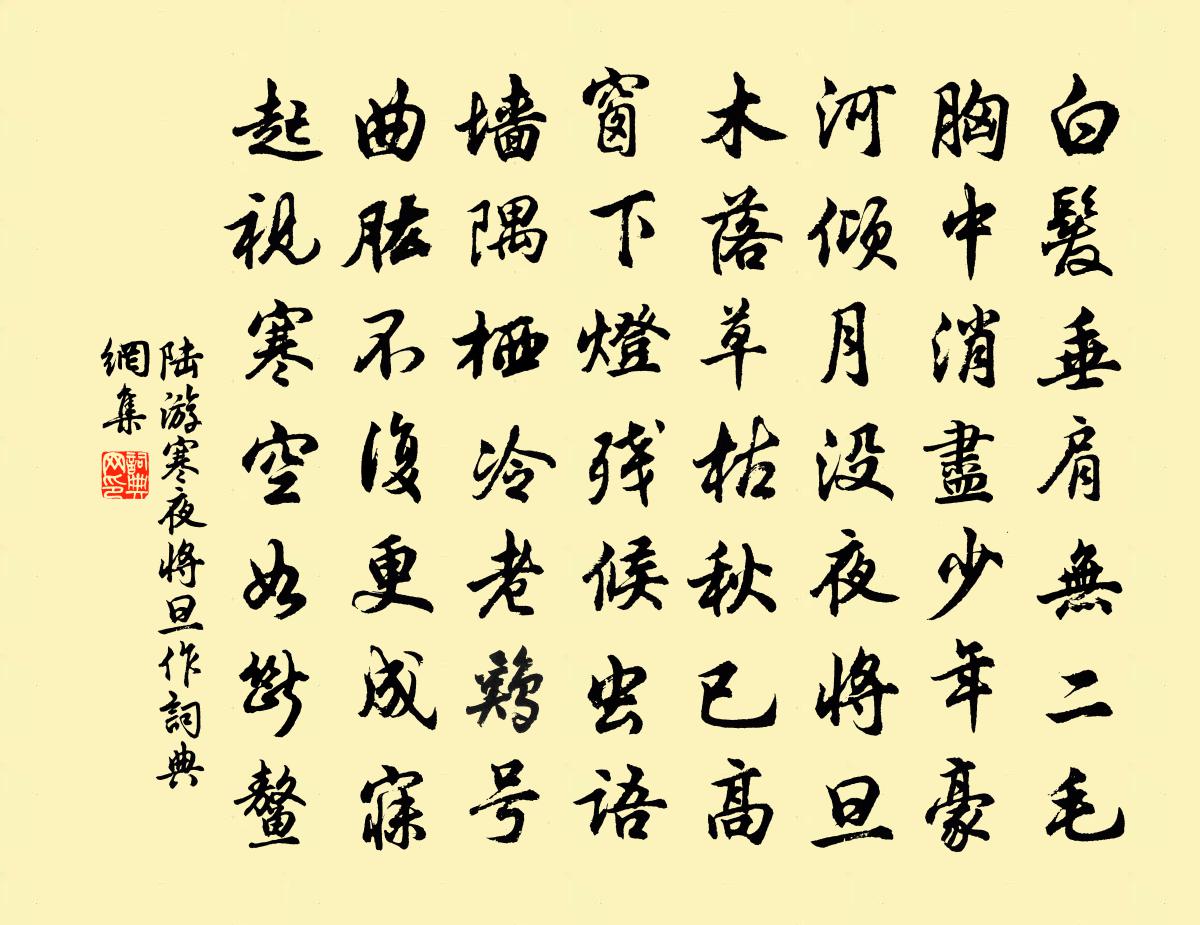 白髮垂肩無二毛
胸中消盡少年豪
河傾月没夜將旦
木落草枯秋已高
窗下燈残候虫語
墙隅栖冷老鷄号
曲肱不復更成寐
起視寒空如斷鰲
陆游寒夜將旦作詞典
網集
詞典
网印